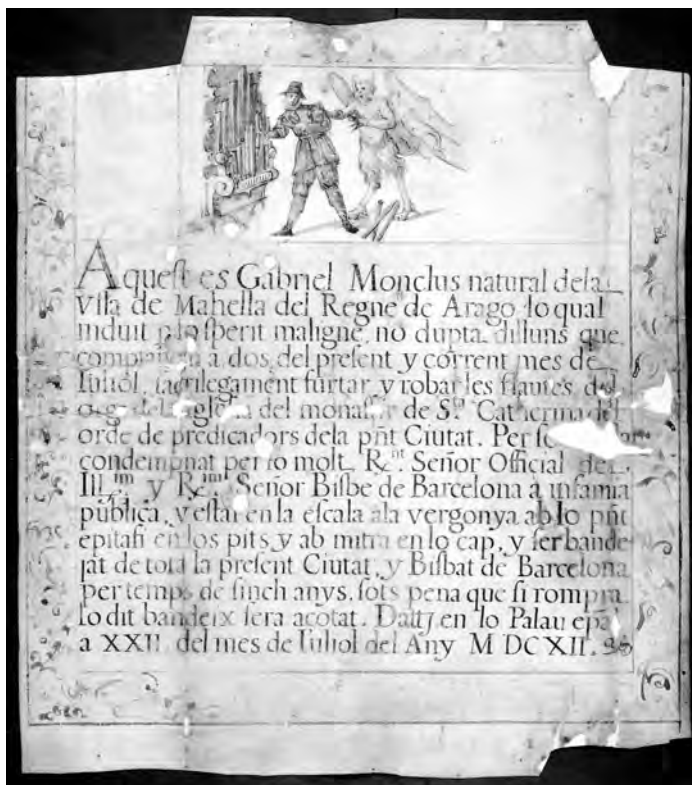 Aquest es Gabriel Monclus natural dela
villa de Mahella del Regne de Arago lo qual
induit p lo sperit maligne, no dupta dilluns que
a dos del present y corrent mes de
Iuliol, sacrilegament furtar y robar les flautes del
orga dela iglesia del monastir de Sta Catherina del
orde de predicadors dela pñt Ciutat. Per
condempnat per lo molt Rnt. Señor Official del
Illm y Rm Señor Bisbe de Barcelona a infamia
publica, y estar en la escala ala vergonya ab lo pñt
epitafi en los pits, y ab mitra en lo cap, y ser bande
jat de tota la present Ciutat, y Bisbat de Barcelona
per temps de sinch anys, sots pena que si rompra
lo dit bandeix sera açotat. Datt en lo Palau epal
a XXII. del mes de Iuliol del Any M DCXII.